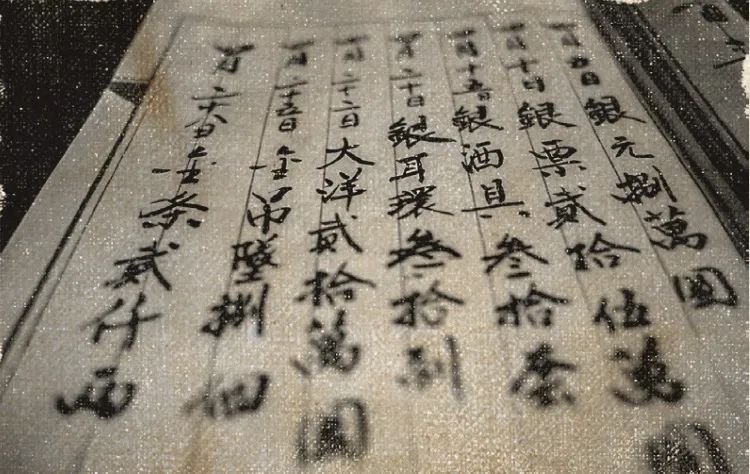 一月五日銀元捌萬圓
一月十日銀票貳拾伍萬圓
一月十五日銀酒具叁拾套
一月二十日銀耳環叁拾副
一月二十二日大洋貳拾萬圓
一月二十五日金吊墜捌個
一月二十日金条貳仟两